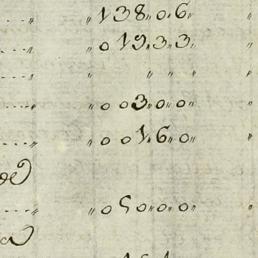 ....〃 〃138〃0〃6〃 〃
....〃 〃019〃3〃3〃 〃
....〃 〃 〃 〃 〃
....〃 〃003〃0〃0〃 〃
....〃 〃001〃6〃0〃 〃
....〃 〃050〃0〃0〃 〃